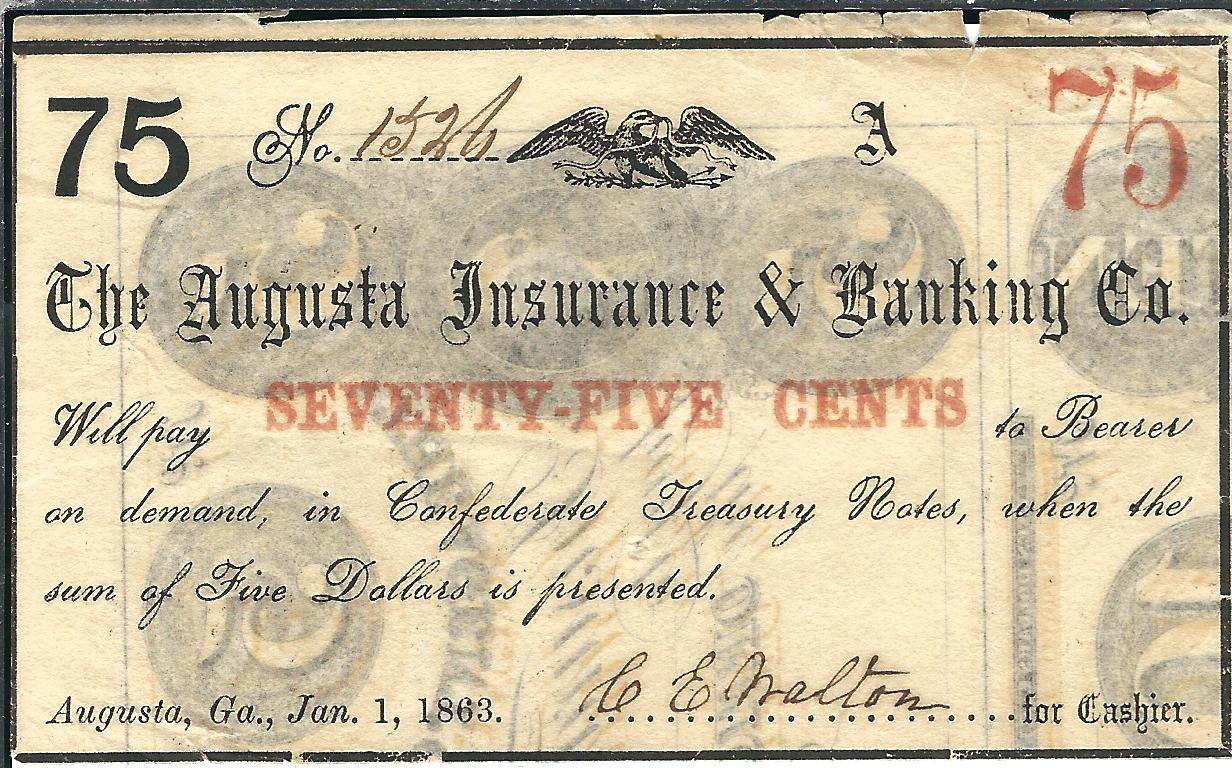 75 No. 1526 A 75
The Augusta Insurance & Banking Co.
SEVENTY-FIVE CENTS
Will pay to Bearer
on demand, in Confederate Treasury Notes, when the
sum of Five Dollars is presented.
Augusta, Ga., Jan. 1, 1863. C E Walton for Cashier.